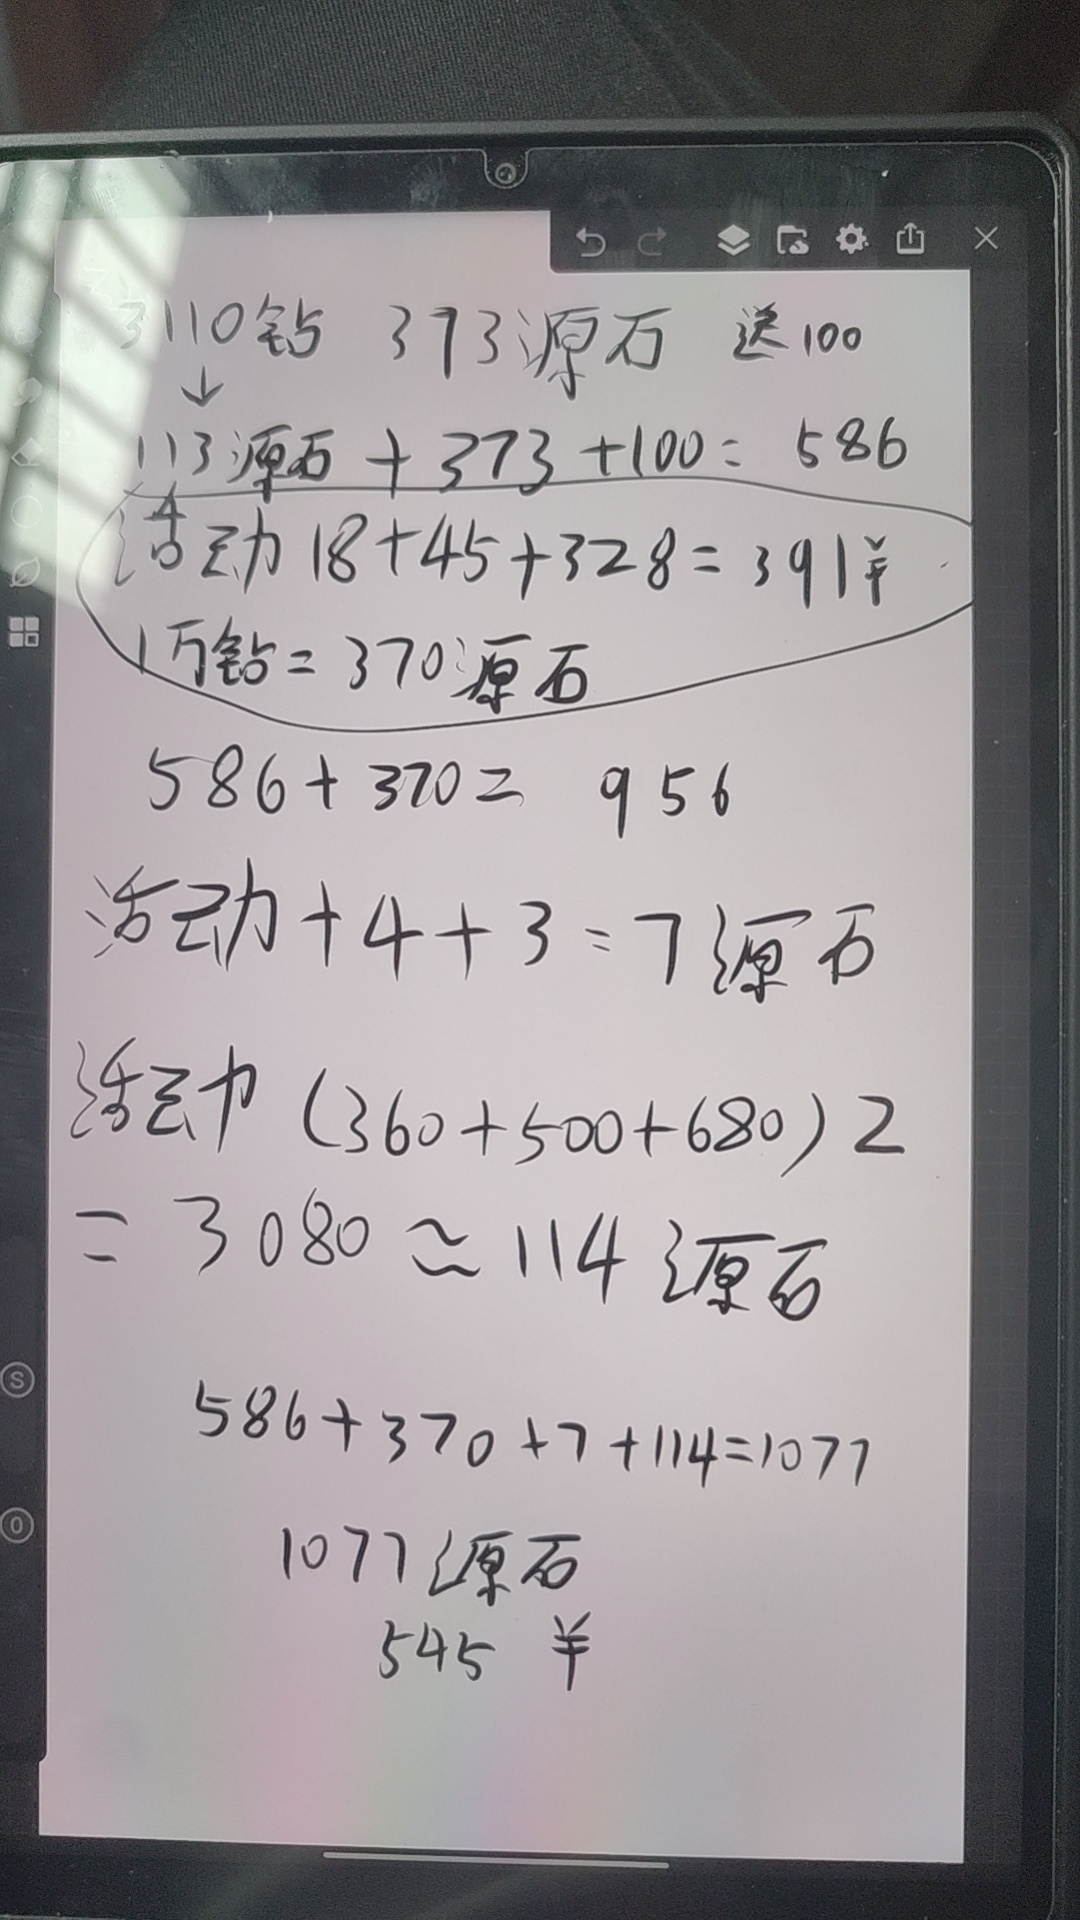 3110钻 373源石 送100
↓
113源石+373+100=586
活动18+45+328=391¥
1万钻=370源石
586+370=956
活动+4+3=7源石
活动(360+500+680)2
=3080≈114源石
586+370+7+114=1077
1077源石
545 ¥
S
0